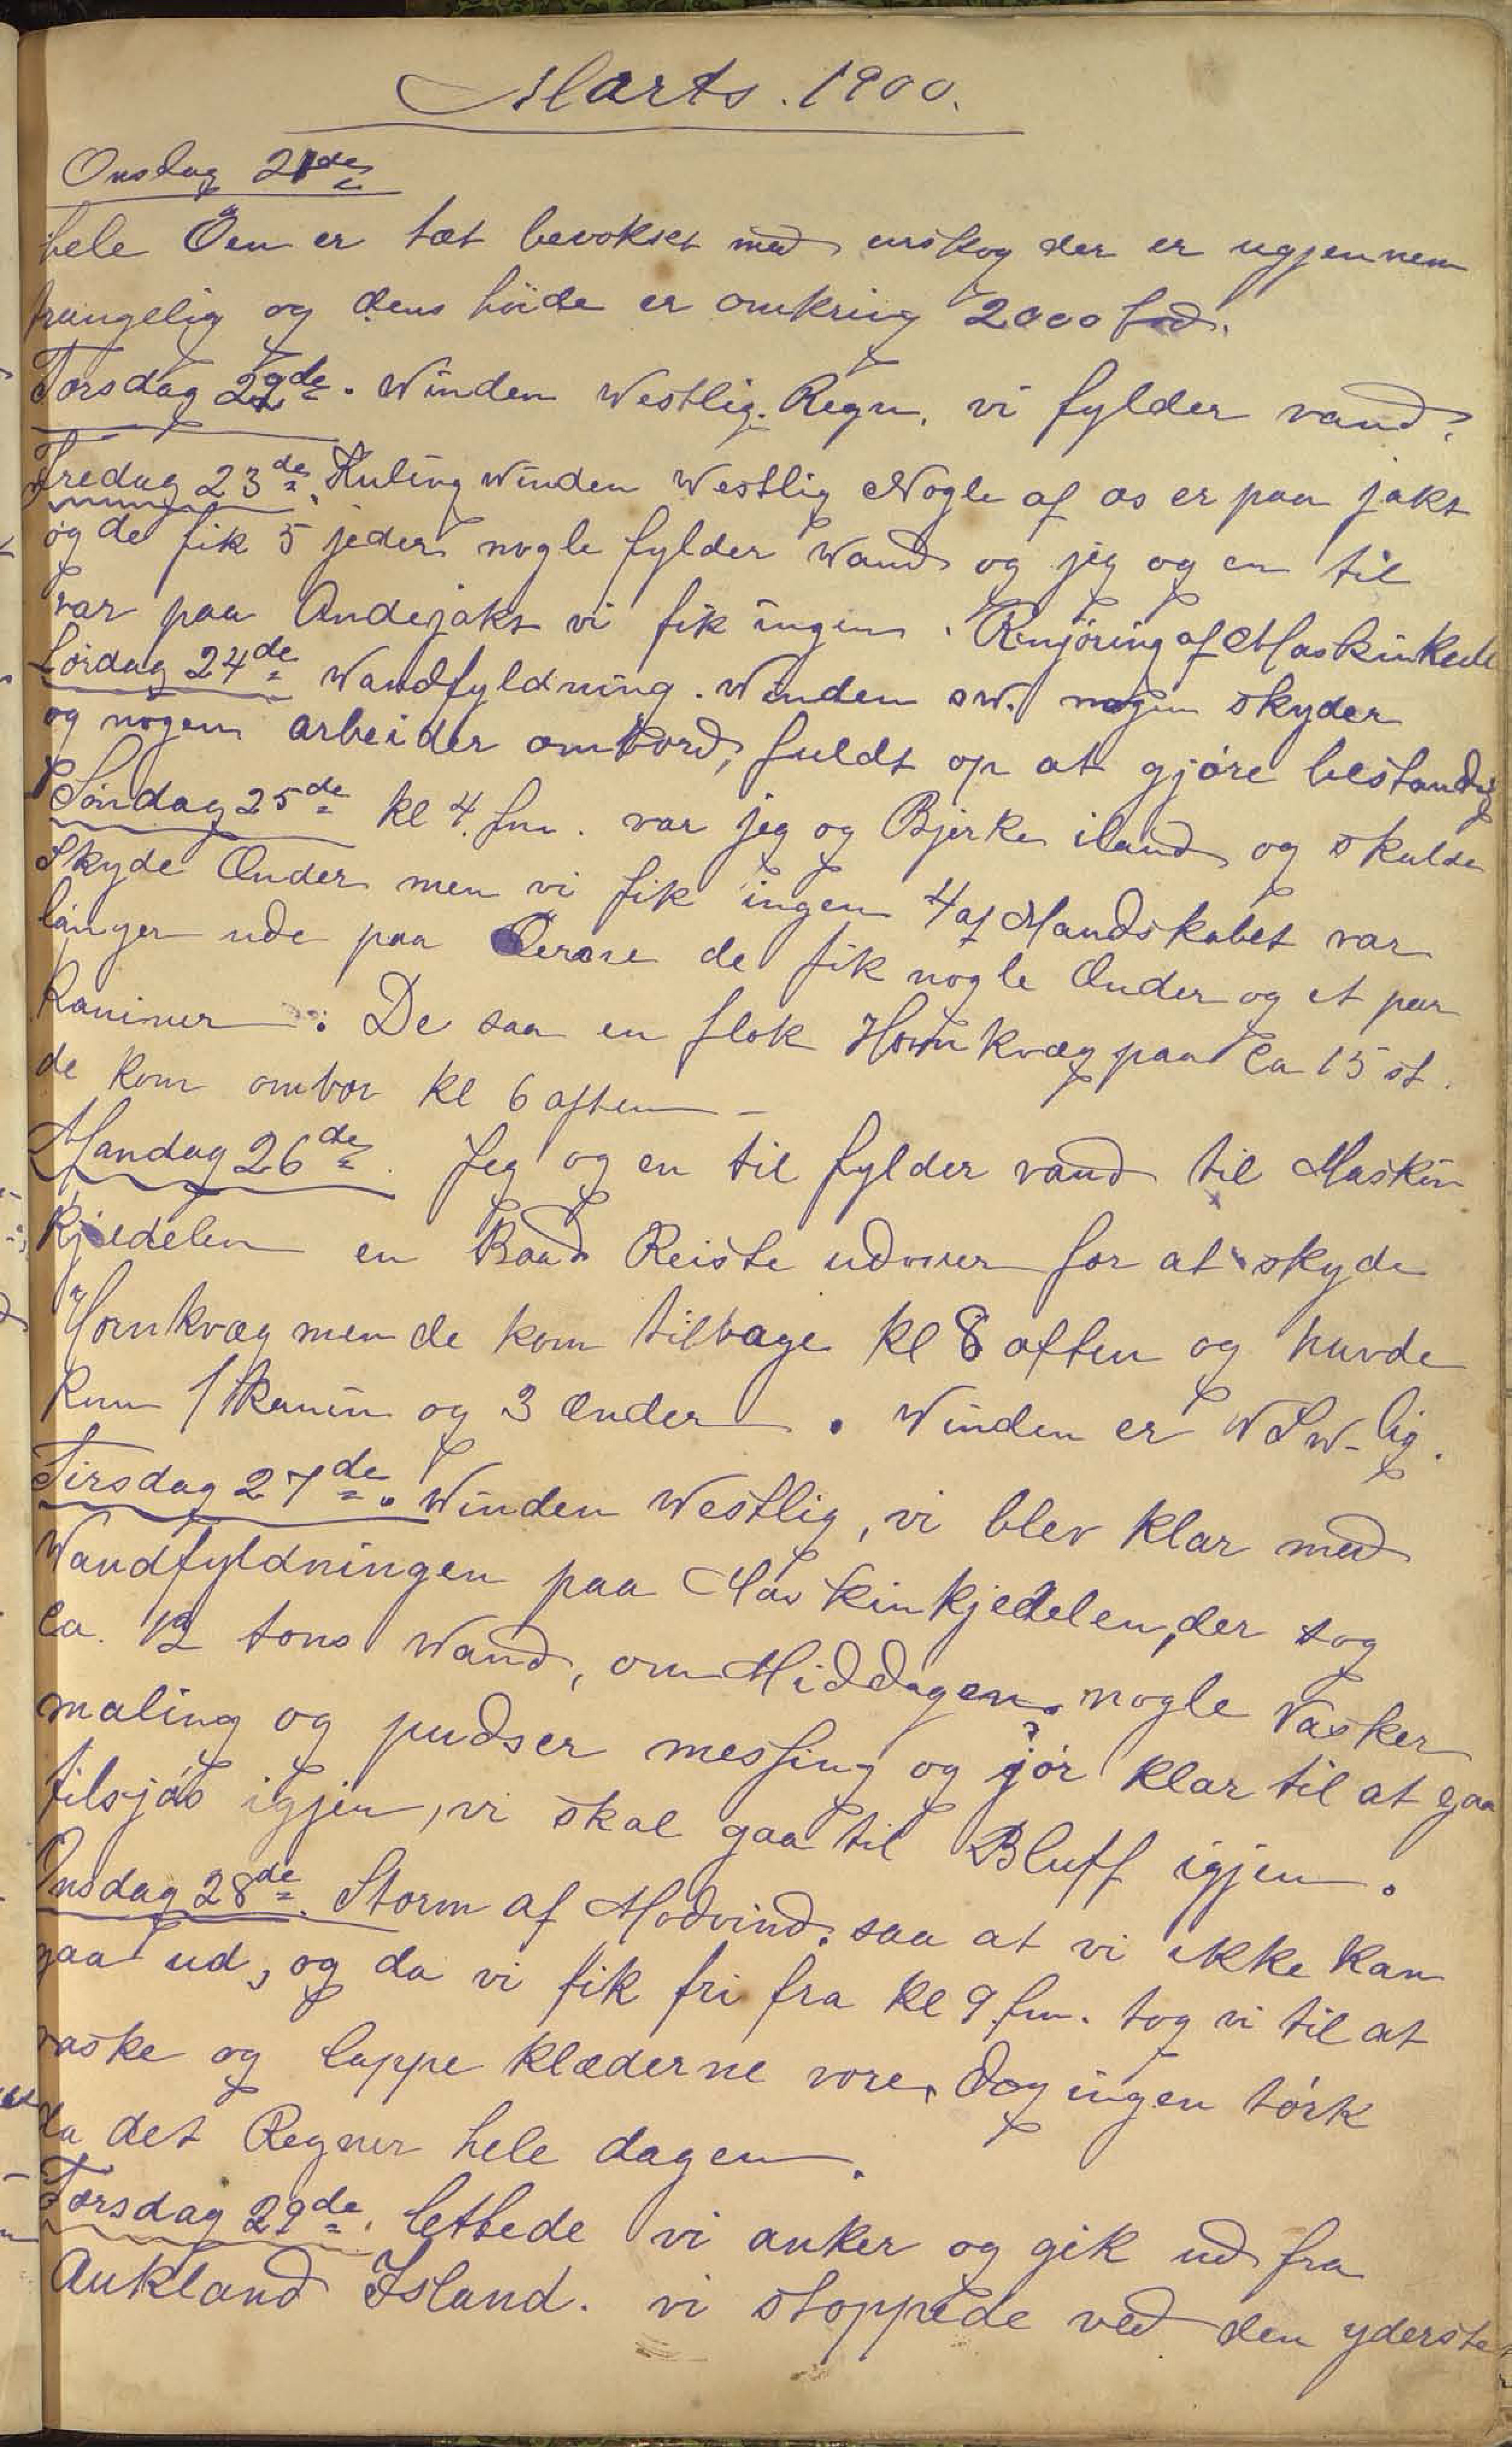 Marts. 1900.
Onsdag 21de
hele Øen er tæt bevokset med urskog der er ugjennem
trangelig og dens høide er omkring 2000 fod.
Torsdag 22de. Winden Westlig. Regn. vi fylder vand.
Fredag 23de. Kuling Winden Westlig Nogle af os er paa jakt
og de fik 5 jeder nogle fylder Wand og jeg og en til
var paa Andejakt vi fik ingen. Renjøring af Maskinkedel
Lørdag 24de Wandfyldning. Winden sw. nogen skyder
og nogen arbeider ombord, fuldt op at gjøre bestandig
Søndag 25de kl 4. fm. var jeg og Bjerke iland og skulde
Skyde Ænder men vi fik ingen 4 af Mandskabet var
længer ude paa Øerne de fik nogle Ænder og et par
Kaniner. De saa en flok Hornkvæg paa Ca 15 st.
de kom ombor kl 6 aften -
Mandag 26de. Jeg og en til fylder vand til Maskin
kjedelen en Baad Reiste udover for at skyde
Hornkvæg men de kom tilbage kl 8 aften og havde
kun 1 kanin og 3 ænder. Winden er WSW-lig.
Tirsdag 27de. Winden Westlig, vi blev klar med
Wandfyldningen paa Maskinkjedelen, der tog
Ca. 12 tons Wand, om Middagen. nogle Vasker
maling og pudser messing og gjør klar til at gaa
tilsjøs igjen, vi skal gaa til Bluff igjen.
Onsdag 28de. Storm af Modvind. saa at vi ikke kan
gaa ud, og da vi fik fri fra kl 9 fm. tog vi til at
vaske og lappe klæderne vore, dog ingen tørk
da det Regner hele dagen.
Torsdag 29de. lettede vi anker og gik ud fra
Aukland Island. vi stoppede ved den yderste